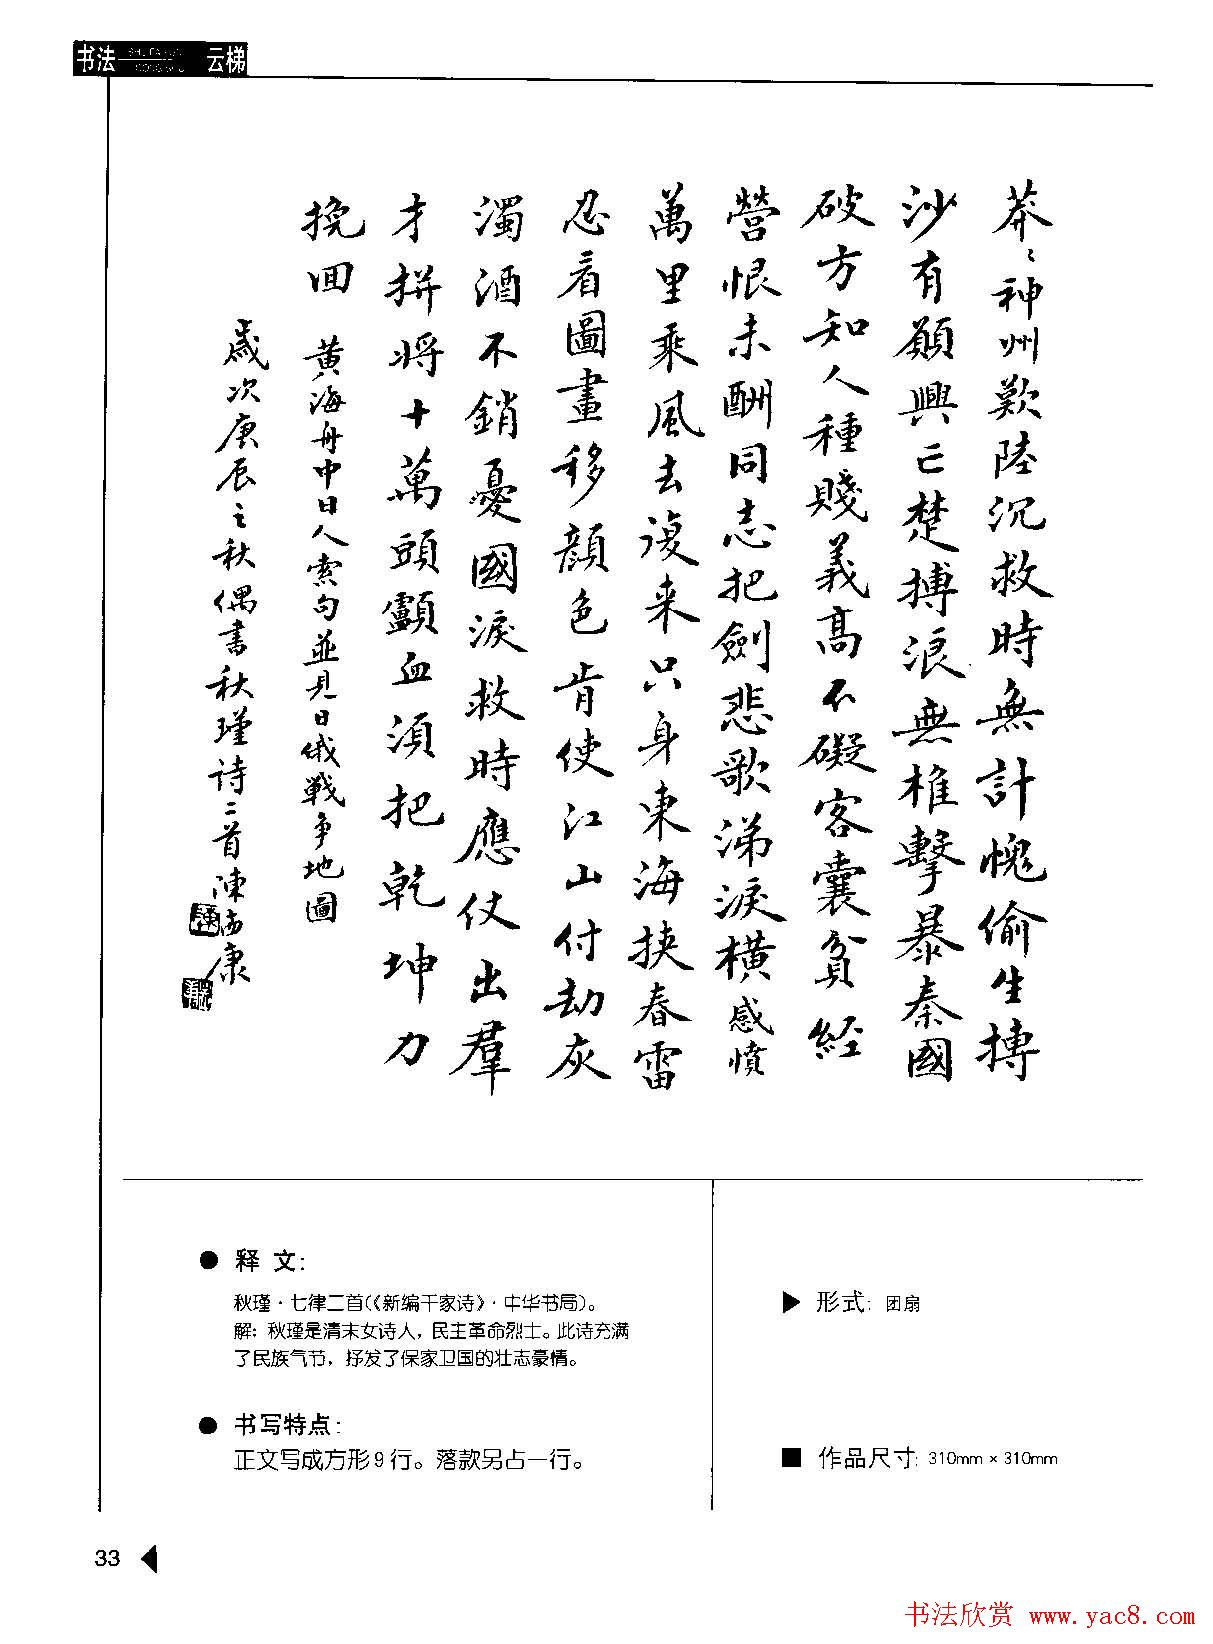 书法云梯
莽〻神州歎陸沉救時無計愧偷生摶
沙有願興亡楚摶浪無椎擊暴秦國
破方知人種賤義高不礙客囊貧經
營恨未酬同志把劍悲歌涕淚橫感憤
萬里乘風去復來只身東海挾春雷
忍看圖畫移顏色肯使江山付劫灰
濁酒不銷憂國淚救時應仗出羣
才拼將十萬頭顱血須把乾坤力
挽回 黃海舟中日人索句並見日俄戰爭地圖
歲次庚辰之秋偶書秋瑾詩二首陳康
● 释 文:
秋瑾·七律二首(《新编千家诗》·中华书局)。
解: 秋瑾是清末女诗人，民主革命烈士。此诗充满
了民族气节，抒发了保家卫国的壮志豪情。
● 书写特点:
正文写成方形9行。落款另占一行。
▶ 形式: 团扇
■ 作品尺寸: 310mm × 310mm
33
书法欣赏 www.yac8.com